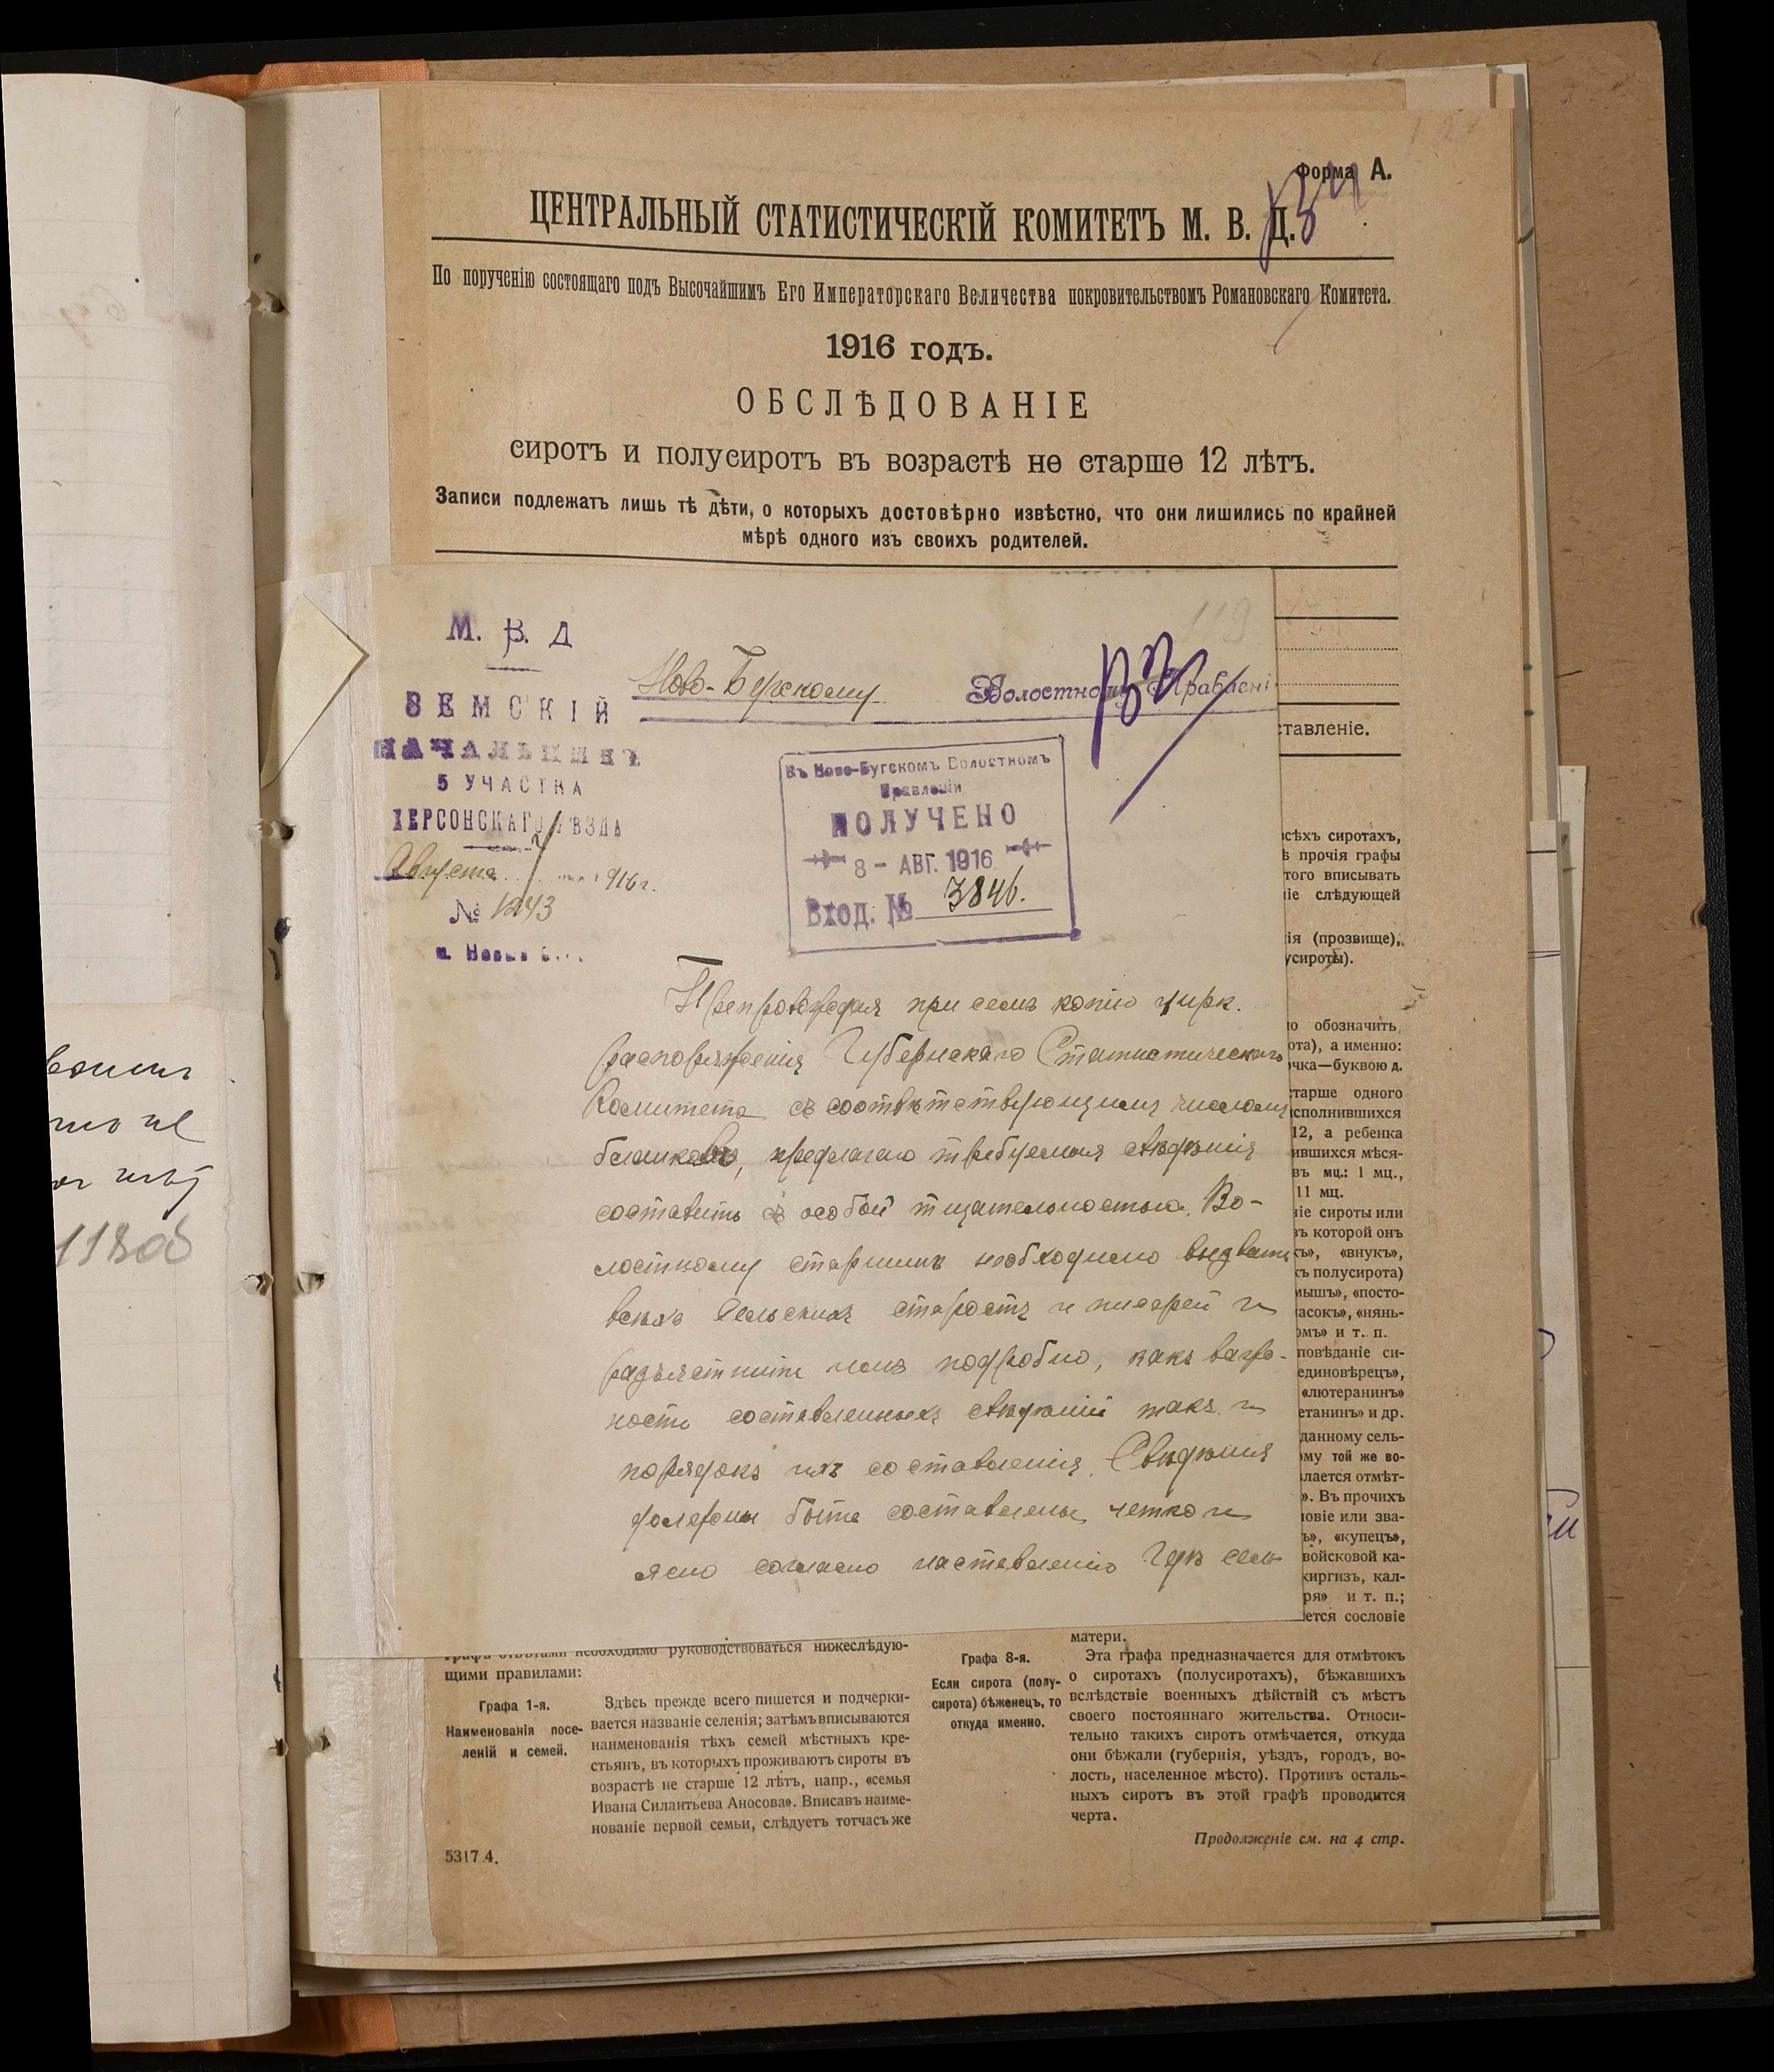 Форма А.
ЦЕНТРАЛЬНЫЙ СТАТИСТИЧЕСКІЙ КОМИТЕТЪ М. В. Д.
По порученію состоящаго подъ Высочайшимъ Его Императорскаго Величества покровительствомъ Романовскаго Комитета.
1916 годъ.
ОБСЛѢДОВАНІЕ
сиротъ и полусиротъ въ возрастѣ не старше 12 лѣтъ.
Записи подлежатъ лишь тѣ дѣти, о которыхъ достовѣрно извѣстно, что они лишились по крайней
мѣрѣ одного изъ своихъ родителей.
119
М. В. Д
ЗЕМСКІЙ
НАЧАЛЬНИКЪ
5 УЧАСТКА
ХЕРСОНСКАГО УѢЗДА
Августа 1916 г.
№ 1243
Ново-Бугскому Волостному Правлені
Въ Ново-Бугскомъ Волостномъ
Правленіи
ПОЛУЧЕНО
8 - АВГ. 1916
Вход. № 3846.
Препровождая при семъ копію цирк.
распоряженія Губернскаго Статистическаго
Комитета съ соотвѣтствующимъ числомъ
бланковъ, предлагаю требуемыя свѣдѣнія
составить съ особой тщательностью. Во-
лостному старшинѣ необходимо вызвать
всѣхъ сельскихъ старостъ и писарей и
разъяснить имъ подробно, какъ важ-
ность составленныхъ свѣдѣній такъ и
порядокъ ихъ составленія. Свѣдѣнія
должны быть составлены четко и
ясно согласно наставленію
ставленіе.
всѣхъ сиротахъ,
ѣ прочія графы
того вписывать
ніе слѣдующей
ія (прозвище),
усироты).
но обозначить
ота), а именно:
очка—буквою д.
старше одного
исполнившихся
12, а ребенка
ившихся мѣся-
въ мц.: 1 мц.,
11 мц.
ніе сироты или
въ которой онъ
къ», «внукъ»,
къ полусирота)
мышъ», «посто-
асокъ», «нянь-
омъ» и т. п.
повѣданіе си-
единовѣрецъ»,
«лютеранинъ»
етанинъ» и др.
данному сель-
ому той же во-
лается отмѣт-
». Въ прочихъ
ловіе или зва-
ъ», «купецъ»,
войсковой ка-
киргизъ, кал-
ря» и т. п.;
ется сословіе
матери.
необходимо руководствоваться нижеслѣдую-
щими правилами:
Графа 1-я.
Наименованія посе-
леній и семей.
Здѣсь прежде всего пишется и подчерки-
вается названіе селенія; затѣмъ вписываются
наименованія тѣхъ семей мѣстныхъ кре-
стьянъ, въ которыхъ проживаютъ сироты въ
возрастѣ не старше 12 лѣтъ, напр., «семья
Ивана Силантьева Аносова». Вписавъ наиме-
нованіе первой семьи, слѣдуетъ тотчасъ же
Графа 8-я.
Если сирота (полу-
сирота) бѣженецъ, то
откуда именно.
Эта графа предназначается для отмѣтокъ
о сиротахъ (полусиротахъ), бѣжавшихъ
вслѣдствіе военныхъ дѣйствій съ мѣстъ
своего постояннаго жительства. Относи-
тельно такихъ сиротъ отмѣчается, откуда
они бѣжали (губернія, уѣздъ, городъ, во-
лость, населенное мѣсто). Противъ осталь-
ныхъ сиротъ въ этой графѣ проводится
черта.
Продолженіе см. на 4 стр.
5317 4.